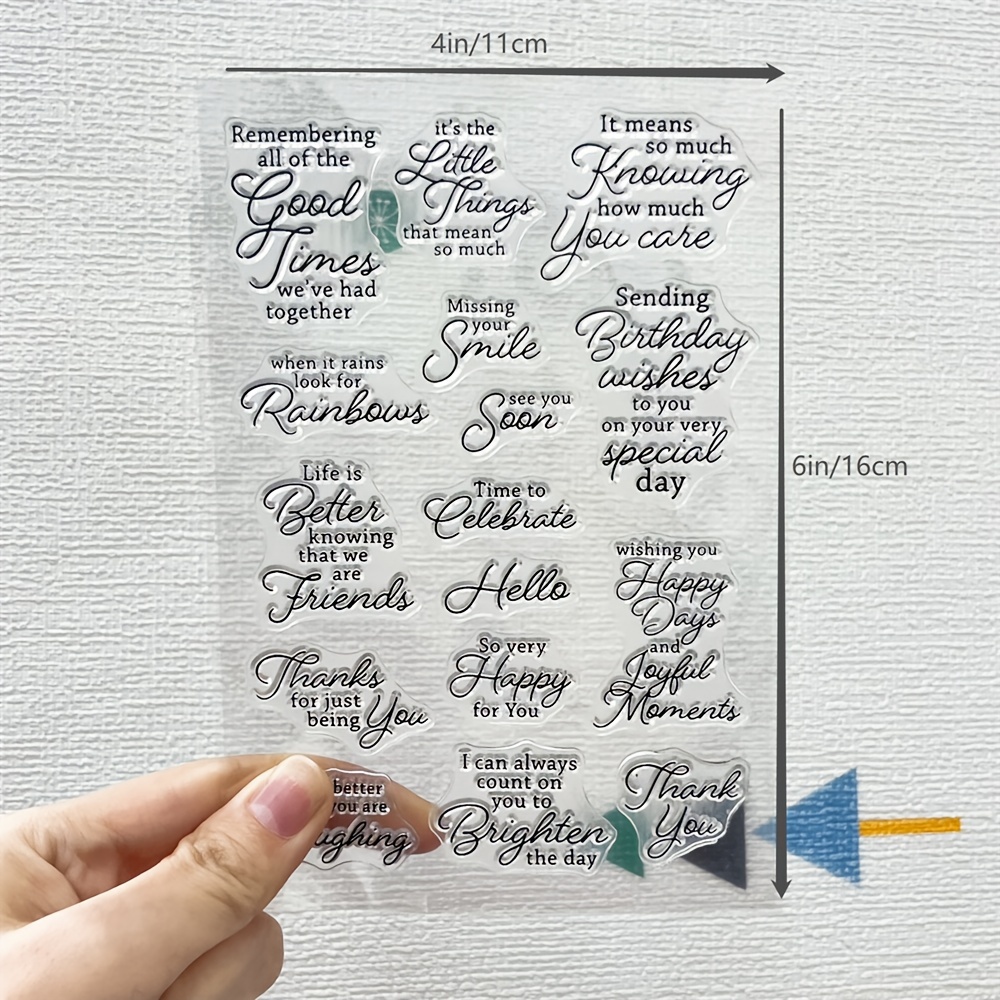 4in/11cm
Remembering
all of the
Good
Times
we've had
together
it's the
Little
Things
that mean
so much
It means
so much
Knowing
how much
You care
Missing
your
Smile
Sending
Birthday
wishes
to you
on your very
special
day
when it rains
look for
Rainbows
see you
Soon
6in/16cm
Life is
Better
knowing
that we
are
Friends
Time to
Celebrate
Hello
wishing you
Happy
Days
and
Joyful
Moments
Thanks
for just
being You
So very
Happy
for You
better
you are
I can always
count on
you to
Brighten
the day
Thank
You